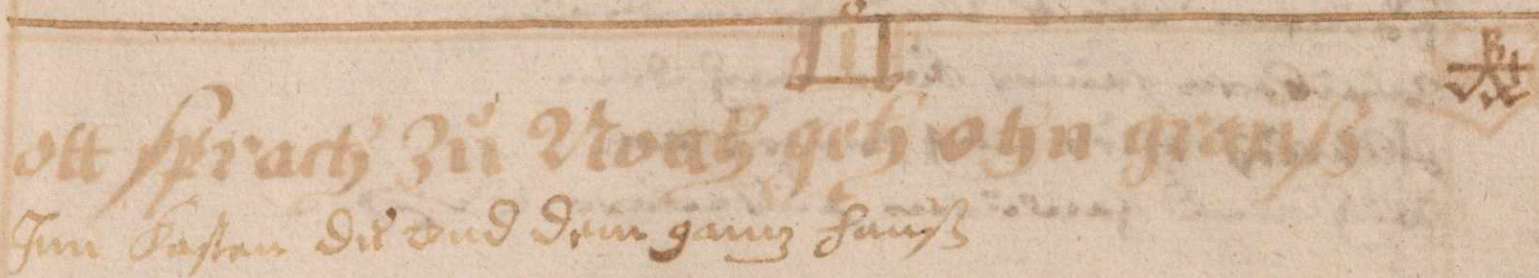 ott sprach zů Noah geh ohn grauß
Inn Kasten du vnd dein gantz hauß